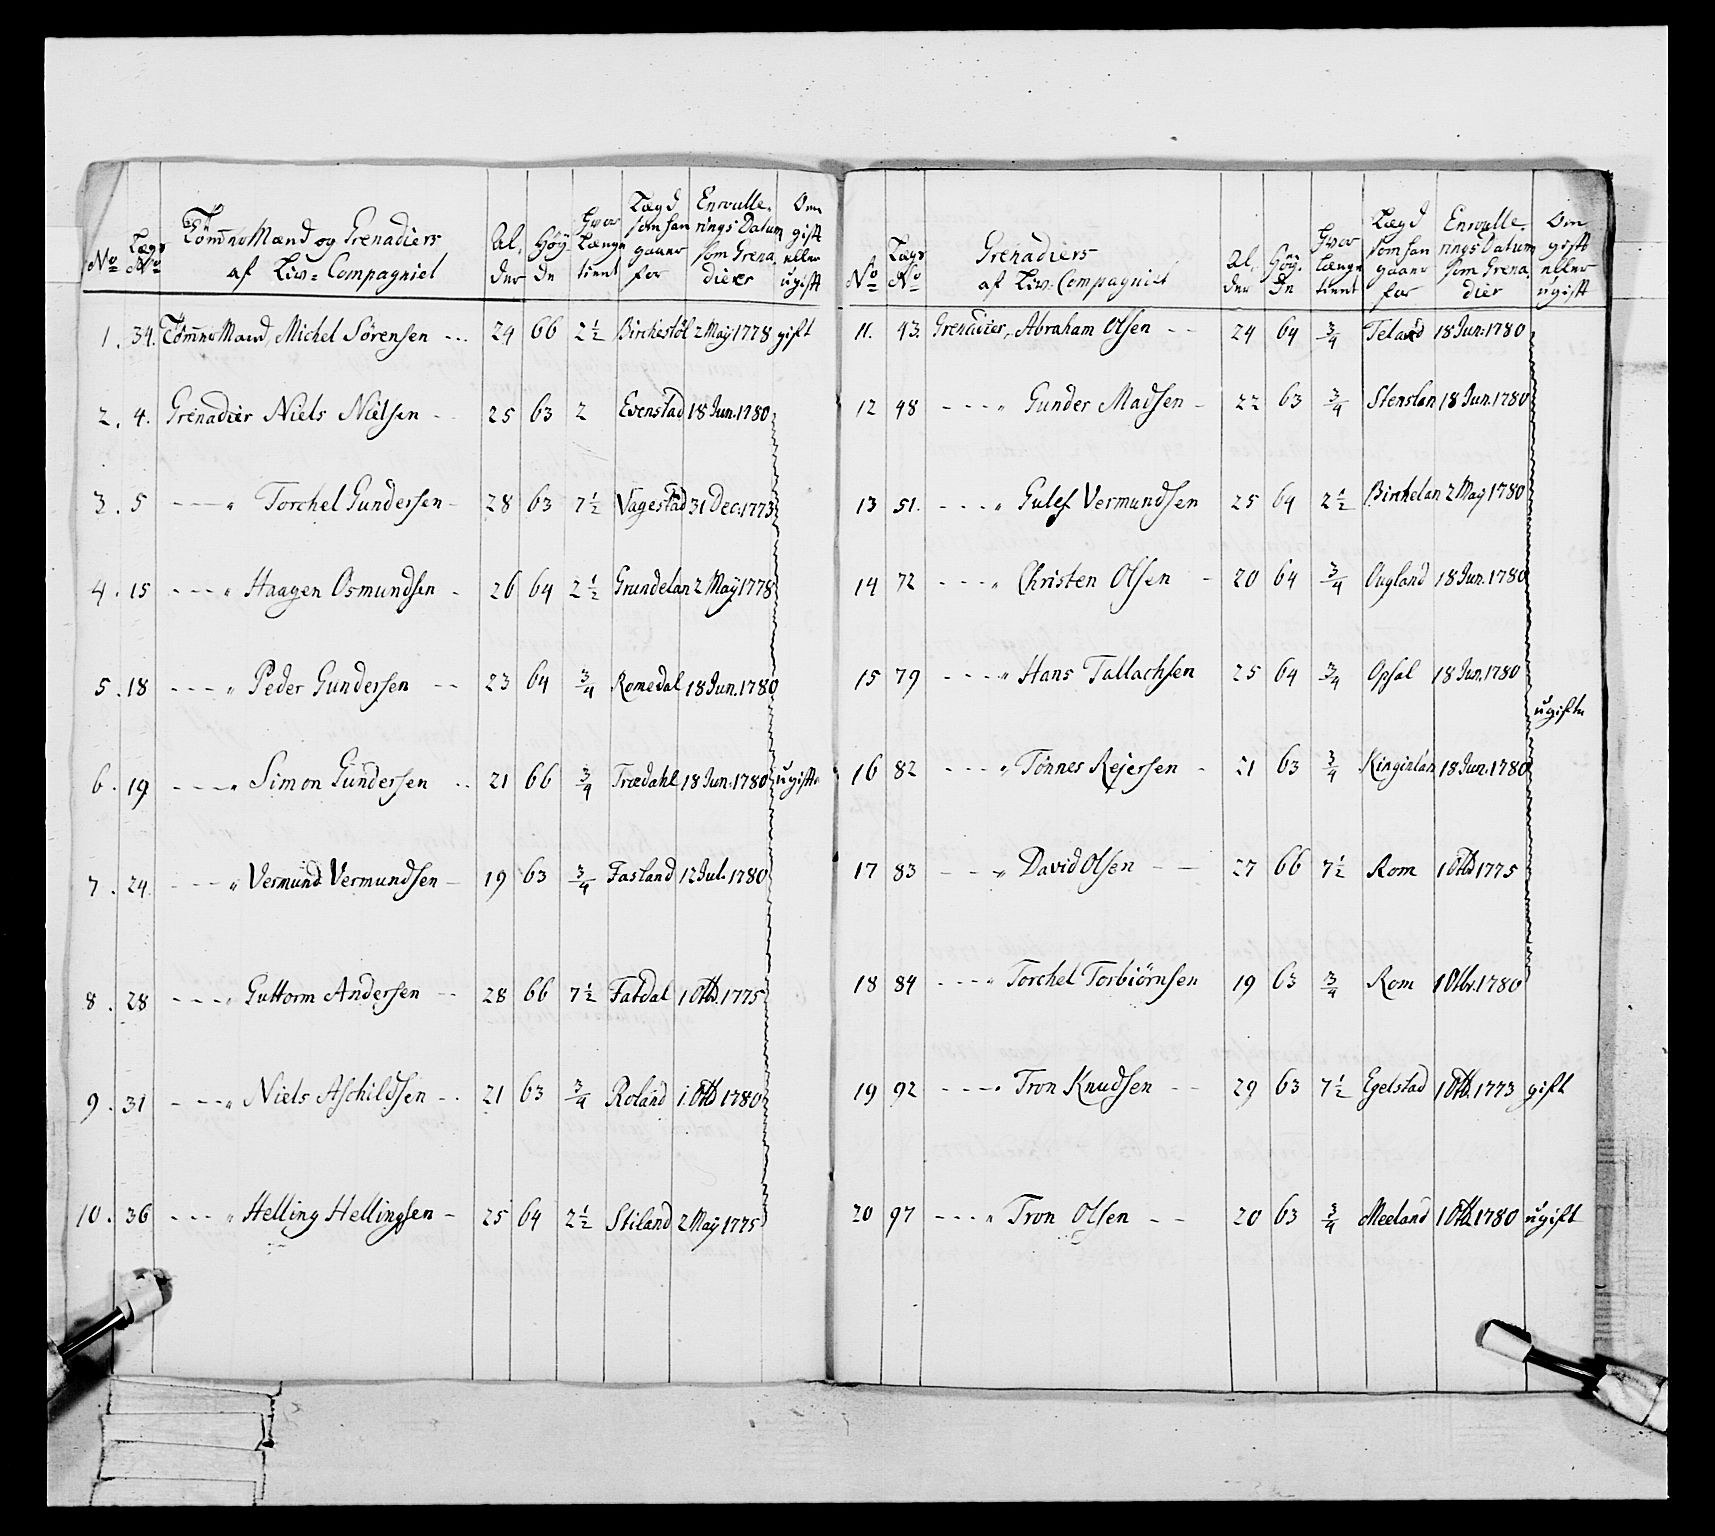 No | Lægs No | Tømmer Mænd og Grenadiers af Liv=Compagniet | Alder | Høyde | Hvor Længe tient | Lægd som han gaaer for | Enroullerings Datum som Grenadierer | Om gift eller ugift
1. 34. Tømmer Mand, Michel Sörensen 29 66 2½ Birchestöl 2 May 1778 gift
2. 4. Grenadier Niels Nielsen 25 63 2 Evenstad 18 Jun. 1780
3. 5 - - - " Torchel Gundersen 28 63 7½ Vagestad 31 Dec. 1773
4. 15 - - - " Haagen Osmundsen 26 64 2½ Grundelan 2 Maÿ 1778
5. 18 - - - " Peder Gundersen 23 64 ¾ Romedal 18 Jun. 1780
6. 19 - - - " Simon Gundersen 21 66 ¾ Trædahl 18 Jun. 1780 ugifte
7. 24. - - - " Vermund Vermundsen 19 63 ¾ Fasland 12 Jul. 1780
8. 28 - - - " Guttorm Andersen 28 66 7½ Fatdal 1 Otb. 1775
9. 31 - - - " Niels Aschildsen 21 63 ¾ Roland 1. Otb 1780
10. 36 - - - " Helling Hellingsen 25 64 2½ Stiland 2 Maÿ 1775
No | Lægs No | Grenadiers af Liv. Compagniet | Alder | Høyde | Hvor længe tient | Lægd som han gaaer for | Enroullerings Datum som Grenadier | Om gift eller ugift
11. 43. Grenadier, Abraham Olsen - - 24 64 ¾ Teland 18 Jun. 1780
12 48 - - - " Gunder Madsen - 22 63 ¾ Stenslan 18 Jun. 1780
13 51. - - - " Gulef Vermundsen 25 64 2½ Birchelan 2 May 1780
14 72 - - - " Christen Olsen - 20 64 ¾ Ougland 18 Jun. 1780
15 79 - - - " Hans Tallachsen 25 64 ¾ Opsal 18 Jun. 1780
ugifte
16 82 - - - " Tönnes Rejersen - 21 63 ¾ Kinginlan 18 Jun. 1780
17 83 - - - " David Olsen - - 27 66 7½ Rom 1 Otb 1775
18 84 - - - " Torchel Torbiörnsen 19 63 ¾ Rom 1 Otbr. 1780
19 92 - - - " Tron Knudsen - - 29 63 7½ Egelstad 1 Otb. 1773 gift
20 97 - - - " Tron Olsen - - 20 63 ¾ Meeland 1 Otb. 1780 ugift